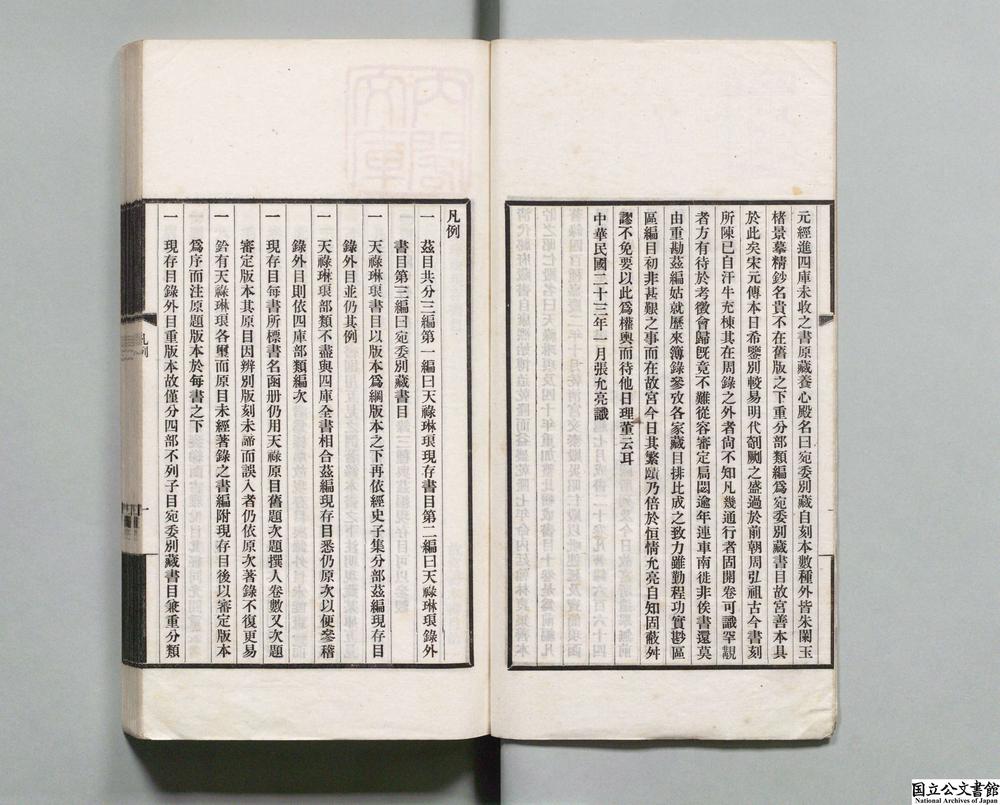 元經進四庫未收之書原藏養心殿名曰宛委別藏自刻本數種外皆朱闌玉
楮景摹精鈔名貴不在舊版之下重分部類編爲宛委別藏書目故宮善本具
於此矣宋元傳本日希鑒別較易明代剞劂之盛過於前朝周弘祖古今書刻
所陳已自汗牛充棟其在周錄之外者尙不知凡幾通行者固開卷可識罕覯
者方有待於考徵會歸旣竟不難從容審定扃閟逾年連車南徙非俟書還莫
由重勘茲編姑就歷來簿錄參攷各家藏目排比成之致力雖勤程功實尠區
區編目初非甚艱之事而在故宮今日其繁賾乃倍於恒情允亮自知固蔽舛
謬不免要以此爲權輿而待他日理董云耳
中華民國二十三年一月張允亮識
凡例
一　茲目共分三編第一編曰天祿琳琅現存書目第二編曰天祿琳琅錄外
書目第三編曰宛委別藏書目
一　天祿琳琅書目以版本爲綱版本之下再依經史子集分部茲編現存目
錄外目並仍其例
一　天祿琳琅部類不盡與四庫全書相合茲編現存目悉仍原次以便參稽
錄外目則依四庫部類編次
一　現存目每書所標書名函册仍用天祿原目舊題次題撰人卷數又次題
審定版本其原目因辨別版刻未諦而誤入者仍依原次著錄不復更易
一　鈐有天祿琳琅各璽而原目未經著錄之書編附現存目後以審定版本
爲序而注原題版本於每書之下
一　現存目錄外目重版本故僅分四部不列子目宛委別藏書目兼重分類
凡例
一
国立公文書館
National Archives of Japan